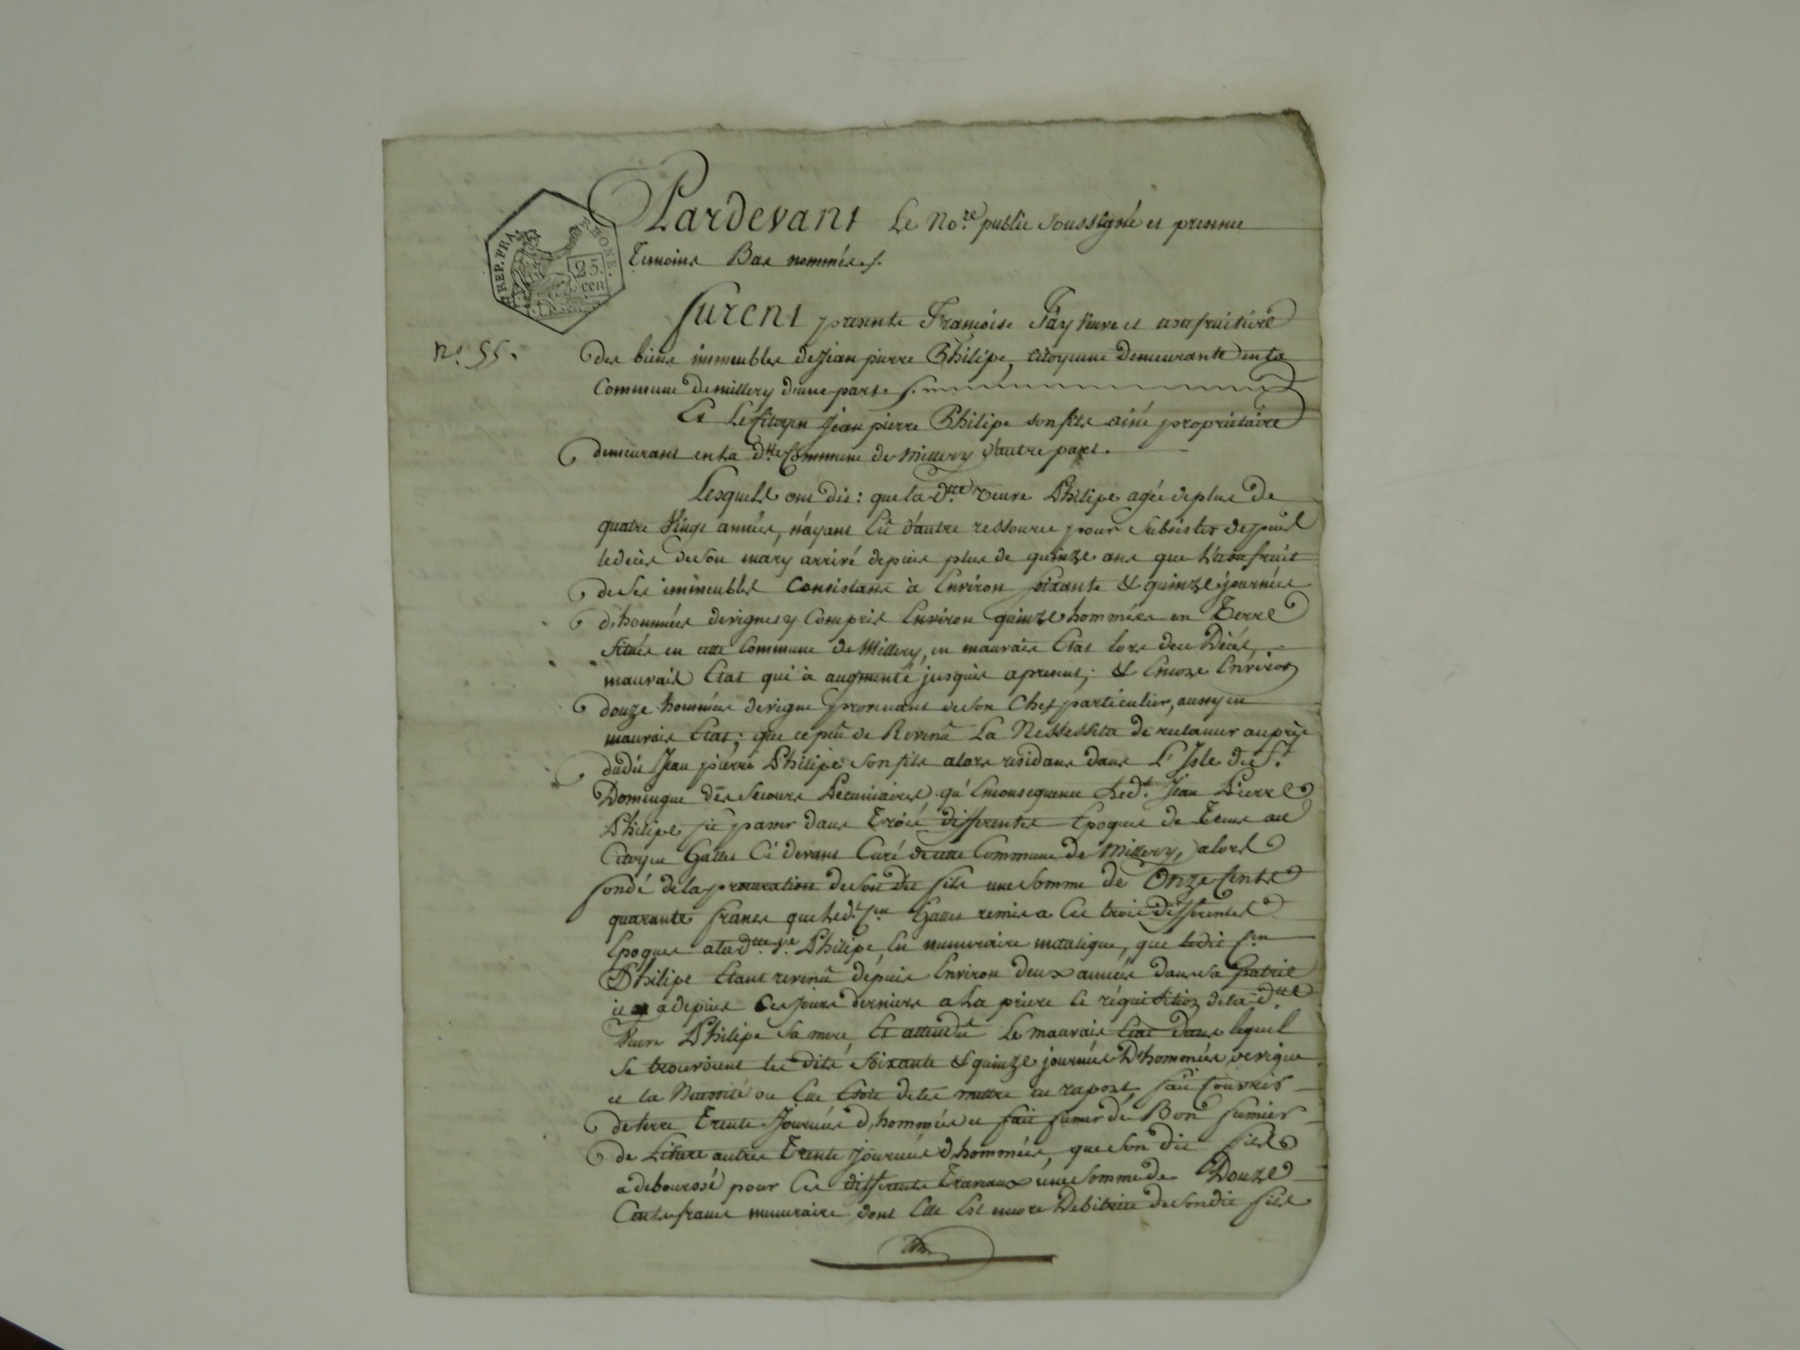 REP. FRA. RHONE.
25.
cen
Pardevant Le No.re public soussigné et presence
Temoins Bas nommés ./.
furent presents Françoise Fäy veuve et usufruitiere
n.o 55.
des biens immeubles de Jean pierre Philipe, citoyenne demeurante en la
Commune de millery d'une part
Et Le Citoyen Jean pierre Philipe son fils ainé propriétaire
demeurant en la d.tte Commune de Millery d'autre part.
Lesquels ont dit : que la d.tte veuve Philipe agée de plus de
quatre vingt années, n'ayant Eü d'autre ressource pour subsister depuis
le décès de son mary arrivé depuis plus de quinze ans que l'usufruit
de ses immeubles Consistans à Environ soixante & quinze journées
d'hommées de vignes y Compris Environ quinze hommées en Terre
situés en cette Commune de Millery, en mauvais Etat lors du Décès,
mauvais Etat qui à augmenté jusques apresent ; & Encore Environ
douze hommées de vigne provenant de son Chef particulier, aussy en
mauvais Etat ; que ce peü de Revenü La Nessessita de reclamer auprès
dudit Jean pierre Philipe son fils alors residant dans L'Isle de St.
Domingue des secours Pécuniaires qu'En consequence Led.t Jean Pierre
Philipe fit passer dans Trois differentes Epoques de Tems au
Citoyen Gallet Ci devant Curé de cette Commune de Millery, alors
fondé de la procuration de son dit fils une somme de Onze Cents
quarante francs que led.t C.en Gallet remis a Ces trois differentes
Epoques a la d.tte v.e Philipe, En numeraire metalique, que ledit C.en
Philipe Etant revenü depuis Environ deux années dans sa Patrie
il a depuis Ces jours derniers a La priere Et réquisition de la d.tte
Veuve Philipe sa mere, Et attendü Le mauvais Etat dans lequel
se trouvoient les dits soixante & quinze journées D'hommées de vigne
et la Necessité ou Elle Etoit de les mettre en raport, fait Couvrir
de terre Trente Journées d'hommées et fait fumer de Bon fumier
de Litiere autres Trente journées d'hommées, que son dit fils
a deboursé pour Ces differents Travaux une somme de Douze
Cents francs numeraire dont Elle Est encore Debitrice de son dit fils